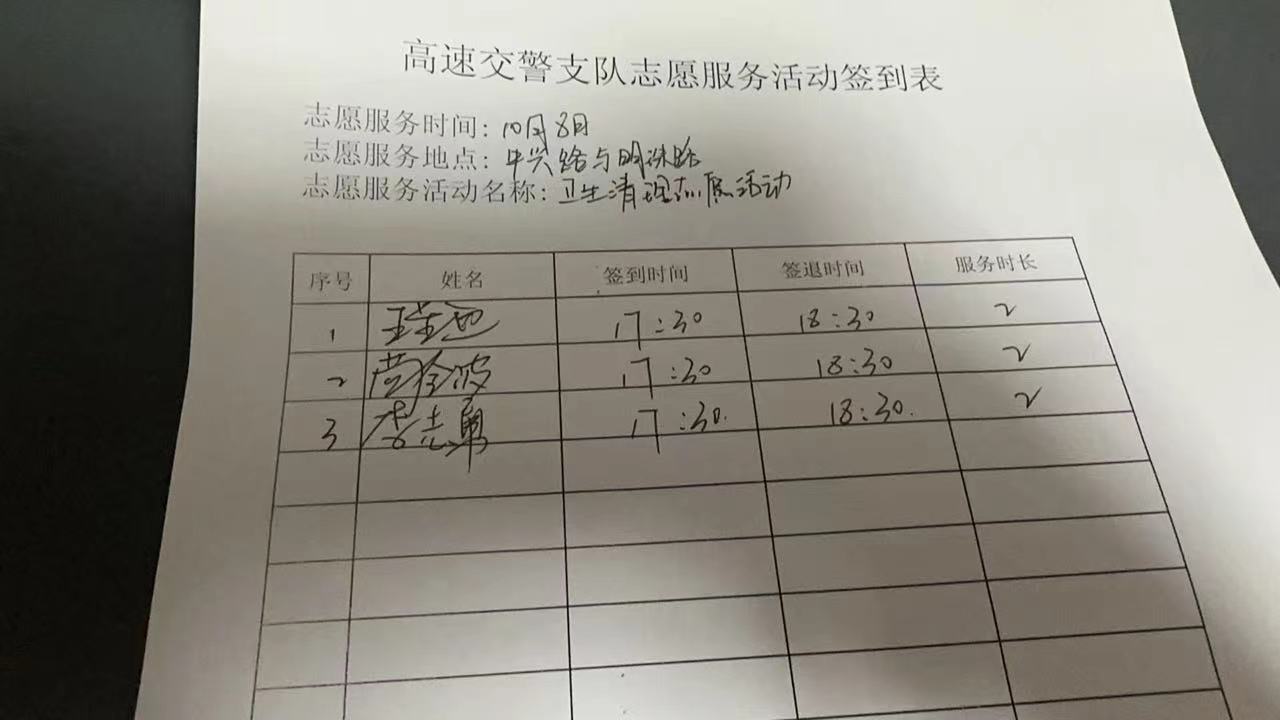 高速交警支队志愿服务活动签到表
志愿服务时间：10月8日
志愿服务地点：中兴路与明珠路
志愿服务活动名称：卫生清理志愿活动
序号 姓名 签到时间 签退时间 服务时长
1 17:30 18:30 2
2 17:30 18:30 2
3 李志勇 17:30. 18:30. 2